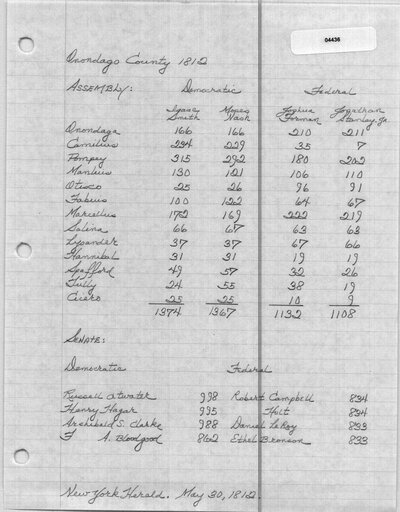 04436
Onondaga County 1812
ASSEMBLY: Democratic Federal
Isaac Smith Moses Nash Joshua Forman Jonathan Stanley, Jr.
Onondaga 166 166 210 211
Camillus 234 229 35 7
Pompey 315 292 180 202
Manlius 130 121 106 110
Otisco 25 26 96 91
Fabius 100 122 64 67
Marcellus 172 169 222 219
Salina 66 67 63 63
Lysander 37 37 67 66
Hannibal 31 31 19 19
Spafford 49 57 32 26
Tully 24 55 38 19
Cicero 25 25 10 9
1374 1367 1132 1108
SENATE:
Democratic Federal
Russell Atwater 998 Robert Campbell 834
Henry Hagar 995 Holt 834
Archibald S. Clarke 988 Daniel LeRoy 833
F A. Bloodgood 862 Ethel Bronson 833
New York Herald. May 30, 1812.